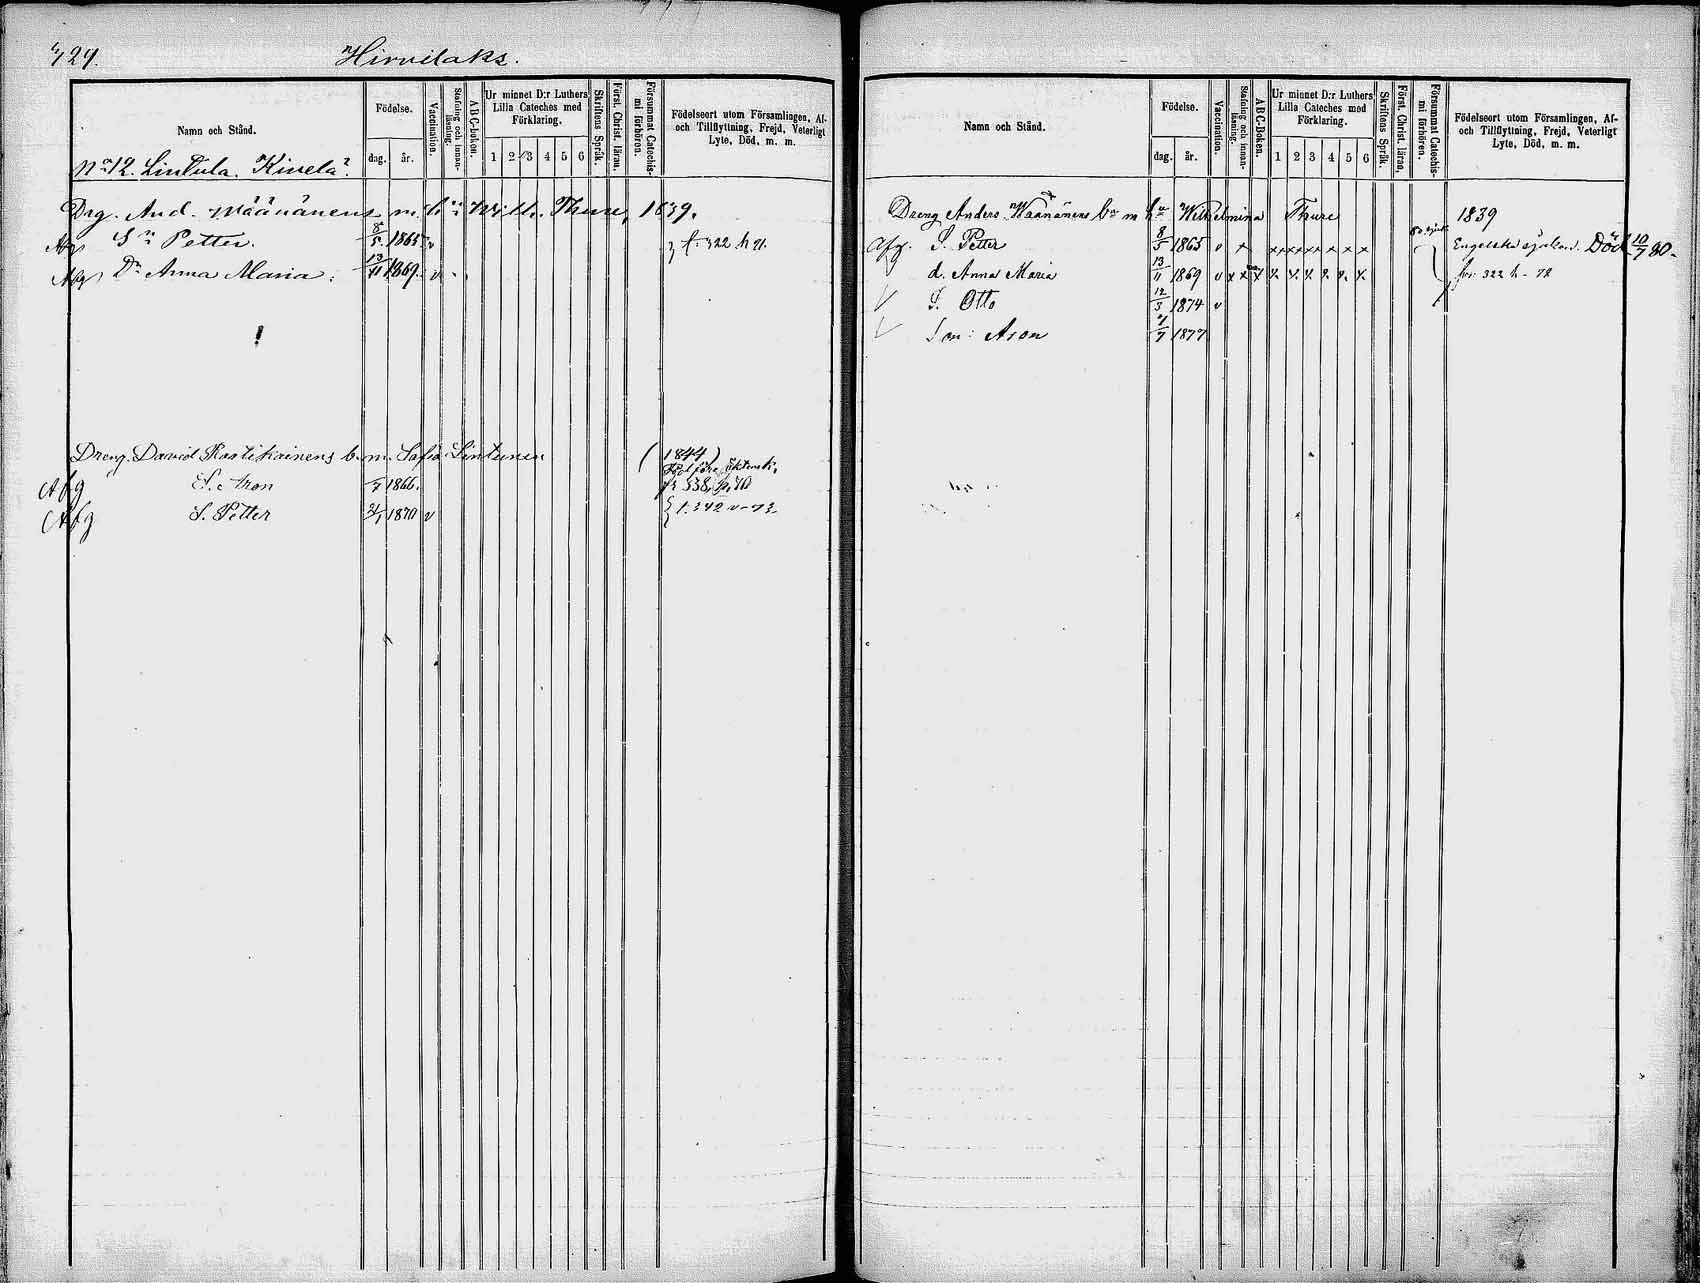 424. Hirvilaks.
Namn och Stånd.
Födelse.
dag. år.
Vaccination.
Stafning och innan-läsning.
ABC-boken.
Ur minnet D:r Luthers Lilla Cateches med Förklaring.
1 2 3 4 5 6
Skriftens Språk.
Först. Christ. läran.
Försummat Catechis-mi förhören.
Födelseort utom Församlingen, Af- och Tillflyttning, Frejd, Veterligt Lyte, Död, m. m.
No 12. Lintula. Kivelä
Drg. And. Väänänens m. h. Wilh. Thure, 1839.
Afg Sn Petter. 8/5 1865 v f. 322 h 71.
Afg Dr Anna Maria. 13/11 1869. v
Dreng. David Rastikainens b. m. Sofia Lintunen (1844)
Född före Äktensk.
Afg S. Aron 1866. fr 338, p. 70
Afg S. Petter 1870 v f. 342 v-73.
Namn och Stånd.
Födelse.
dag. år.
Vaccination.
Stafning och innan-läsning.
ABC-Boken.
Ur minnet D:r Luthers Lilla Cateches med Förklaring.
1 2 3 4 5 6
Skriftens Språk.
Först. Christ. läran,
Försummat Catechis-mi förhören.
Födelseort utom Församlingen, Af- och Tillflyttning, Frejd, Veterligt Lyte, Död, m. m.
Dreng Anders Väänänens b. m hu Wilhelmina Thure 1839
Afg. S. Petter 8/5 1865 v x x x x x x x x Engelska sjukan. Död 10/7 80.
d. Anna Maria 13/11 1869 v x x x x. x. x. x. x. x. 322 h - 72
S. Otto 12/3 1874 v
Son: Aron 7/7 1877